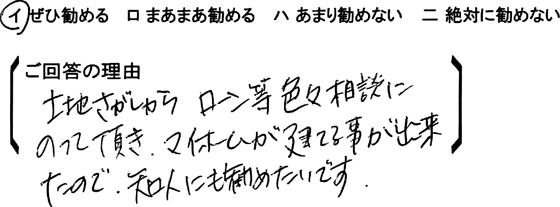 イ ぜひ勧める ロ まあまあ勧める ハ あまり勧めない ニ 絶対に勧めない
ご回答の理由
土地さがしから ローン等色々相談に
のって頂き、マイホームが建てる事が出来
たので、知人にも勧めたいです.